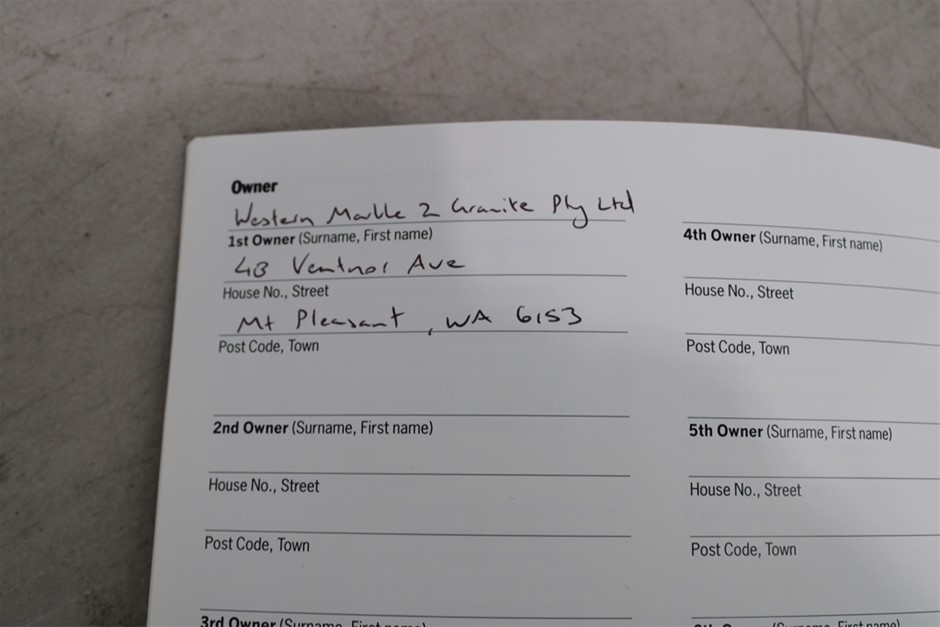 Owner
Western Marble & Granite Pty Ltd
1st Owner (Surname, First name)
4B Ventnor Ave
House No., Street
Mt Pleasant, WA 6153
Post Code, Town
2nd Owner (Surname, First name)
House No., Street
Post Code, Town
3rd Owner (Surname, First name)
4th Owner (Surname, First name)
House No., Street
Post Code, Town
5th Owner (Surname, First name)
House No., Street
Post Code, Town
6th Owner (Surname, First name)